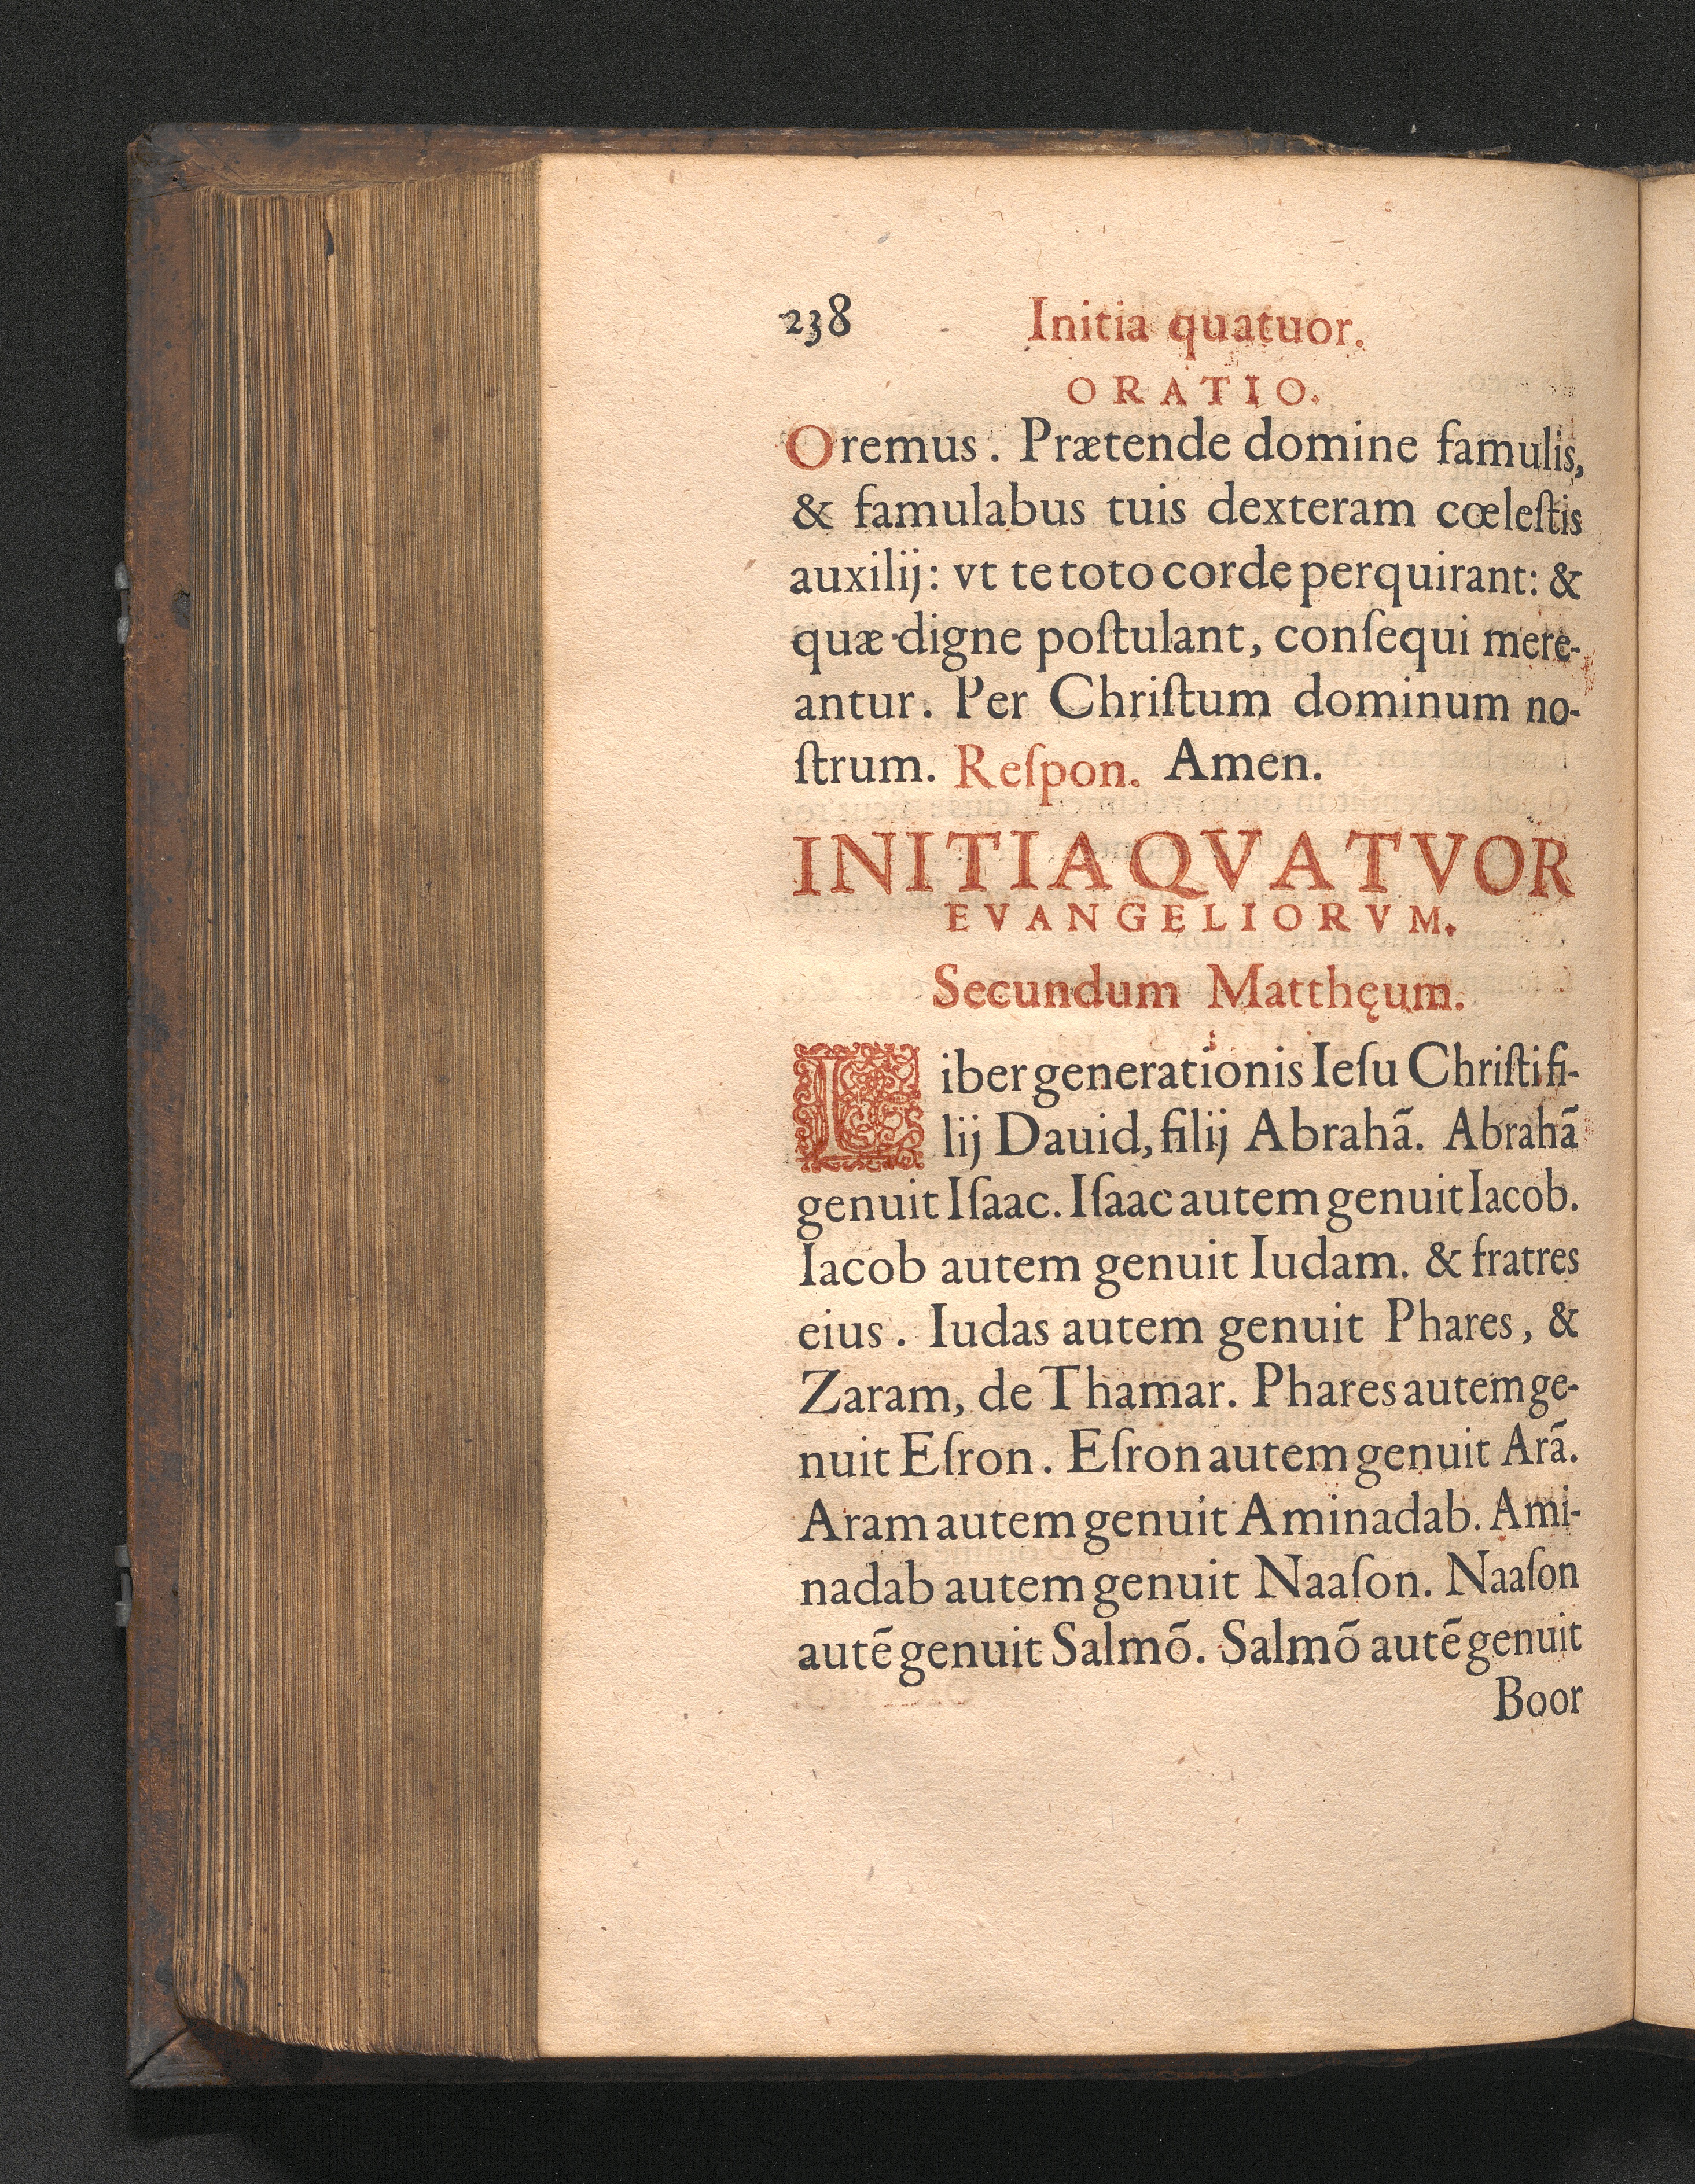 238 Initia quatuor.
ORATIO.
Oremus. Prætende domine famulis,
& famulabus tuis dexteram cœleſtis
auxilij: vt te toto corde perquirant: &
quæ digne poſtulant, conſequi mere-
antur. Per Chriſtum dominum no-
ſtrum. Reſpon. Amen.
INITIA QVATVOR
EVANGELIORVM.
Secundum Matthęum.
Liber generationis Ieſu Chriſti fi-
lij Dauid, filij Abrahã. Abrahã
genuit Iſaac. Iſaac autem genuit Iacob.
Iacob autem genuit Iudam. & fratres
eius. Iudas autem genuit Phares, &
Zaram, de Thamar. Phares autem ge-
nuit Eſron. Eſron autem genuit Arã.
Aram autem genuit Aminadab. Ami-
nadab autem genuit Naaſon. Naaſon
autẽ genuit Salmõ. Salmõ autẽ genuit
Boor